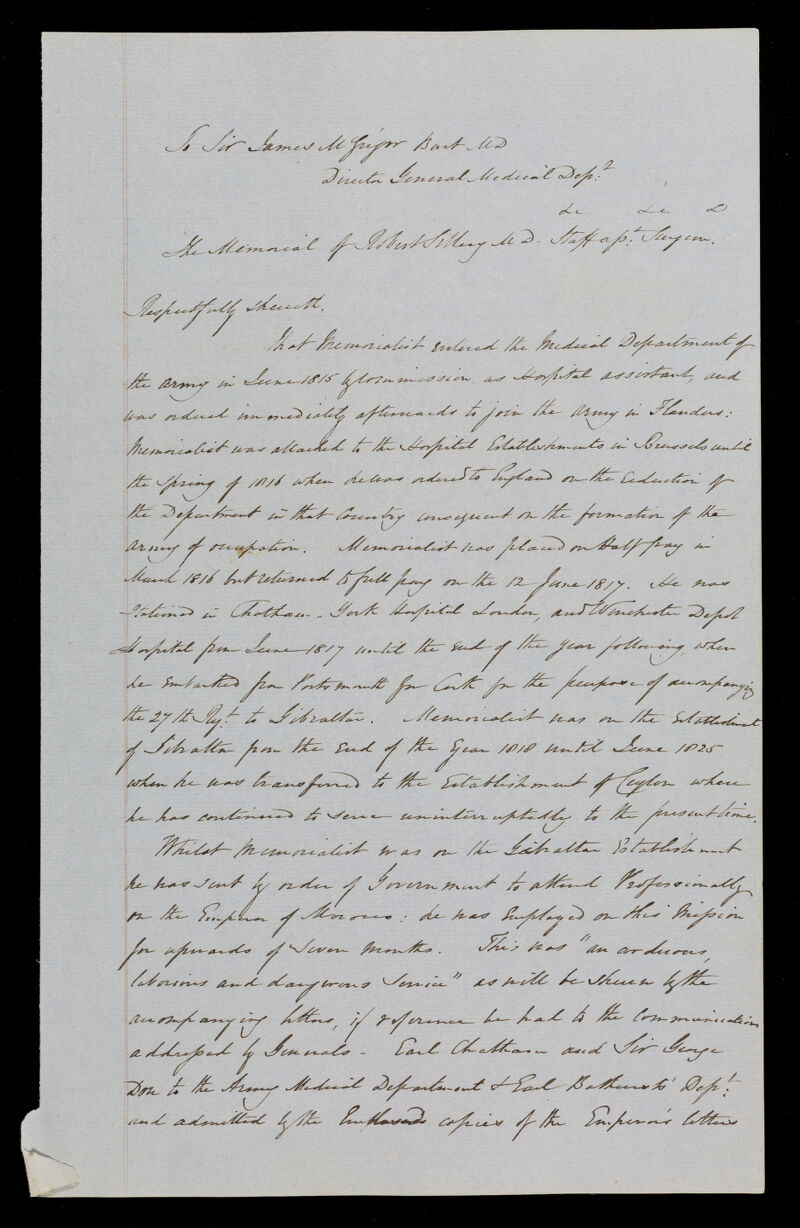 To Sir James McGrigor Bart MD
Director General Medical Dept.
&c &c &
The Memorial of Robert Sillery MD. Staff asst. Surgeon.
Respectfully sheweth.
That Memorialist entered the Medical Department of
the army in June 1815 by commission as Hospital assistant, and
was ordered immediately afterwards to join the army in Flanders:
Memorialist was attached to the Hospital Establishments in Brussels until
the spring of 1816 when he was ordered to England on the reduction of
the Department in that Country consequent on the formation of the
army of occupation. Memorialist was placed on Half pay in
March 1816 but returned to full pay on the 12 June 1817. He was
stationed in Chatham - York Hospital London, and Winchester Depot
Hospital from June 1817 until the end of the year following, when
he embarked from Portsmouth for Cork for the purpose of accompanying
the 27th Regt. to Gibraltar. Memorialist was on the establishment
of Gibraltar from the End of the Year 1818 until June 1825
when he was transferred to the Establishment of Ceylon where
he has continued to serve uninterruptedly to the present time.
Whilst Memorialist was on the Gibraltar Establishment
he was sent by order of Government to attend Professionally
on the Emperor of Morocco: he was Employed on this Mission
for upwards of seven months. This was "an arduous,
laborious and dangerous service" as will be shewn by the
accompanying letters, if reference be had to the communications
addressed by Generals - Earl Chatham and Sir George
Don to the Army Medical Department & Earl Bathursts' Dept.
and admitted by the copies of the Emperor's letters